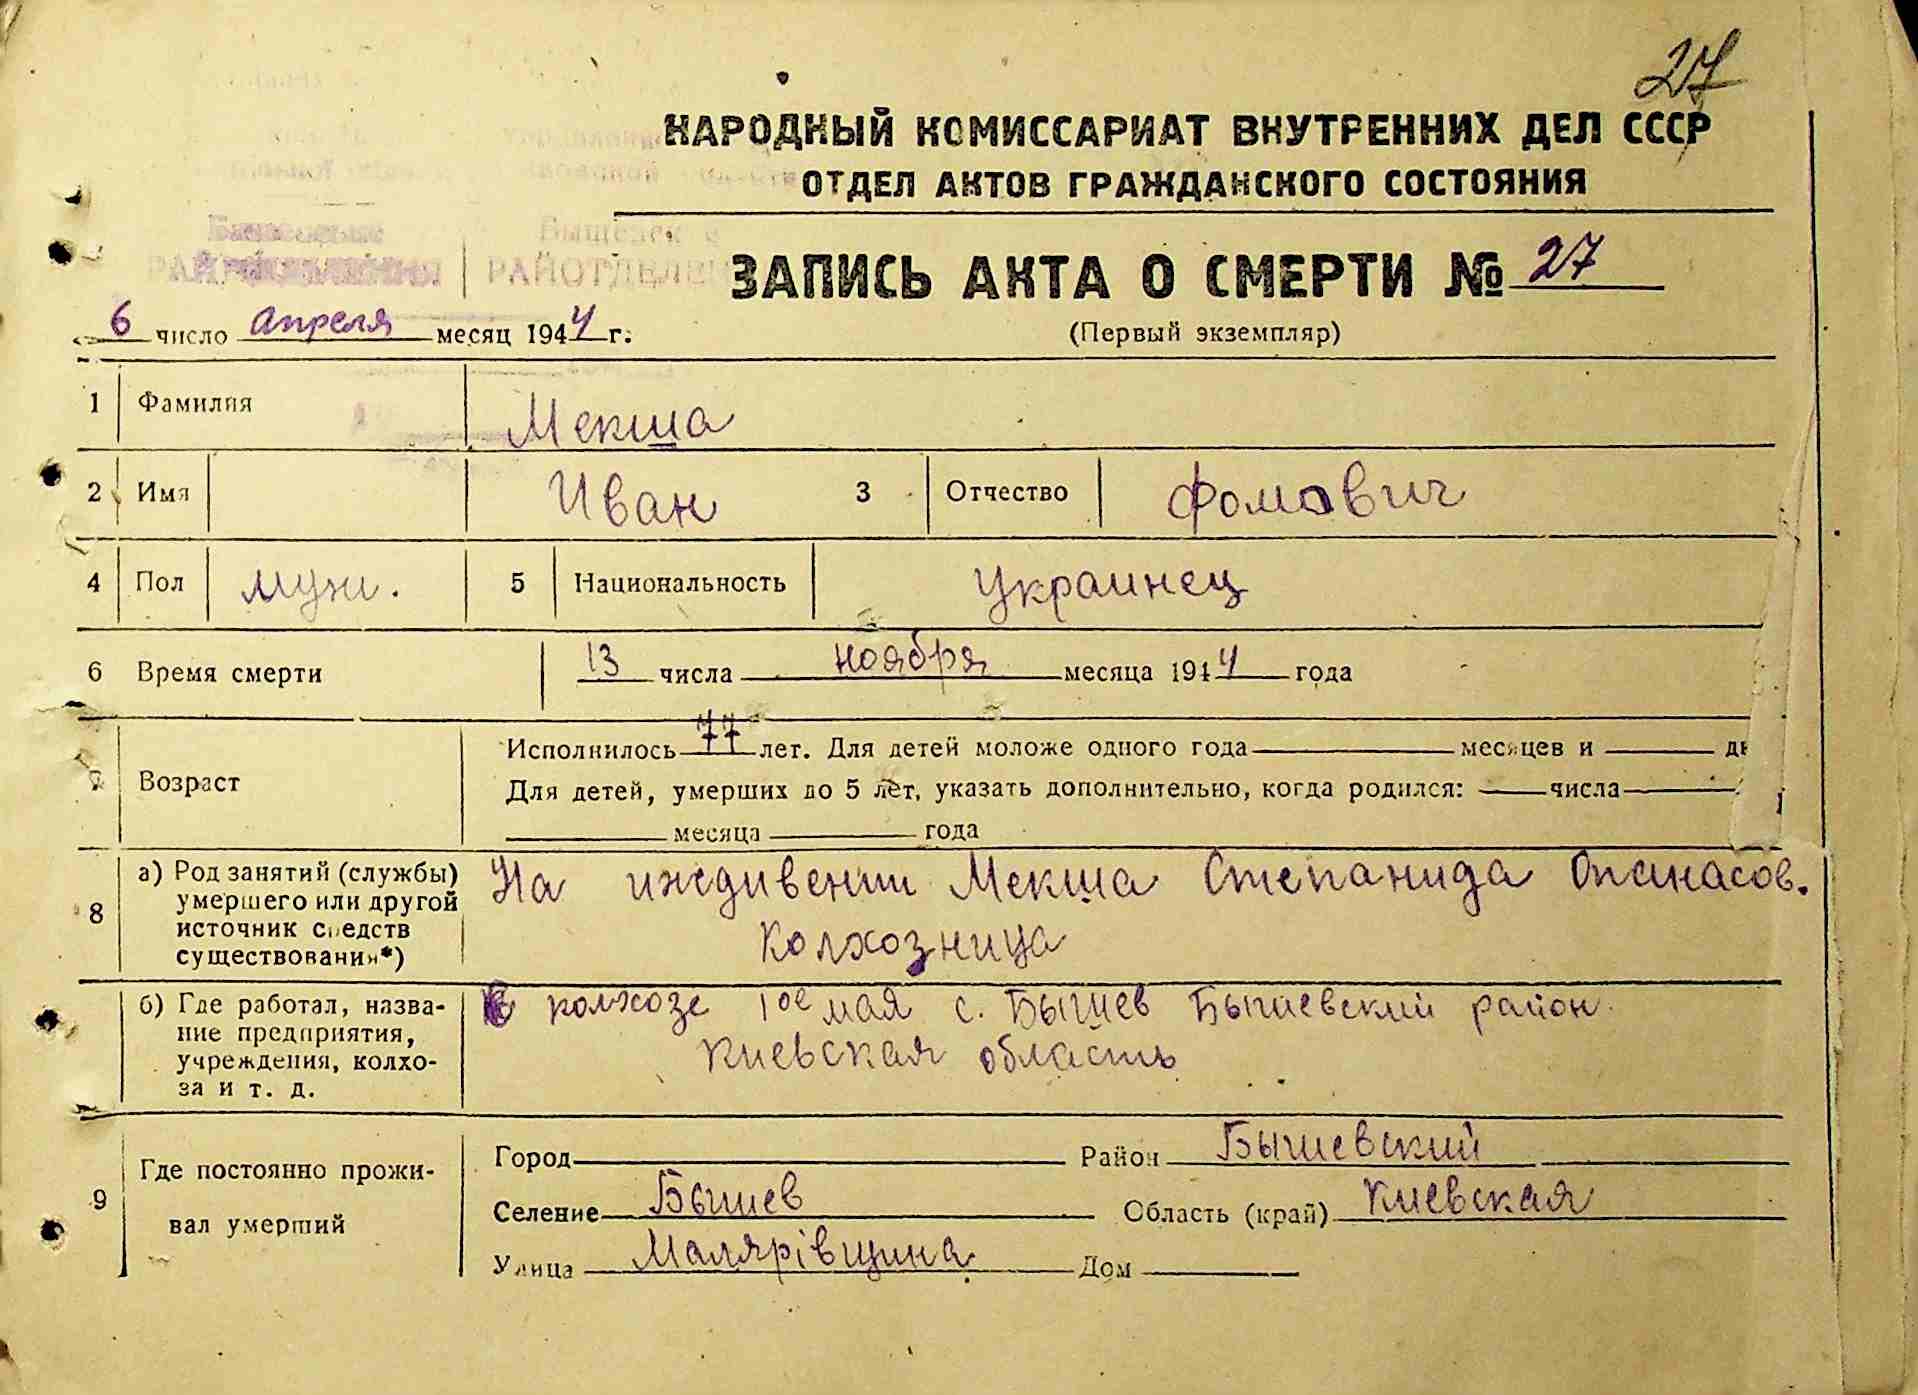 27
НАРОДНЫЙ КОМИССАРИАТ ВНУТРЕННИХ ДЕЛ СССР
ОТДЕЛ АКТОВ ГРАЖДАНСКОГО СОСТОЯНИЯ
ЗАПИСЬ АКТА О СМЕРТИ № 27
6 число апреля месяц 1944 г.
(Первый экземпляр)
1 Фамилия Мекша
2 Имя Иван 3 Отчество Фомович
4 Пол муж. 5 Национальность Украинец
6 Время смерти 13 числа ноября месяца 1944 года
7 Возраст
Исполнилось 77 лет. Для детей моложе одного года месяцев и
Для детей, умерших до 5 лет, указать дополнительно, когда родился: числа
месяца года
8 а) Род занятий (службы) умершего или другой источник средств существования*)
На иждивении Мекша Степанида Опанасов.
колхозница
б) Где работал, название предприятия, учреждения, колхоза и т. д.
колхозе 1ое мая с. Бышев Бышевский район.
Киевская область
9 Где постоянно проживал умерший
Город Район Бышевский
Селение Бышев Область (край) Киевская
Улица Малярівщина Дом